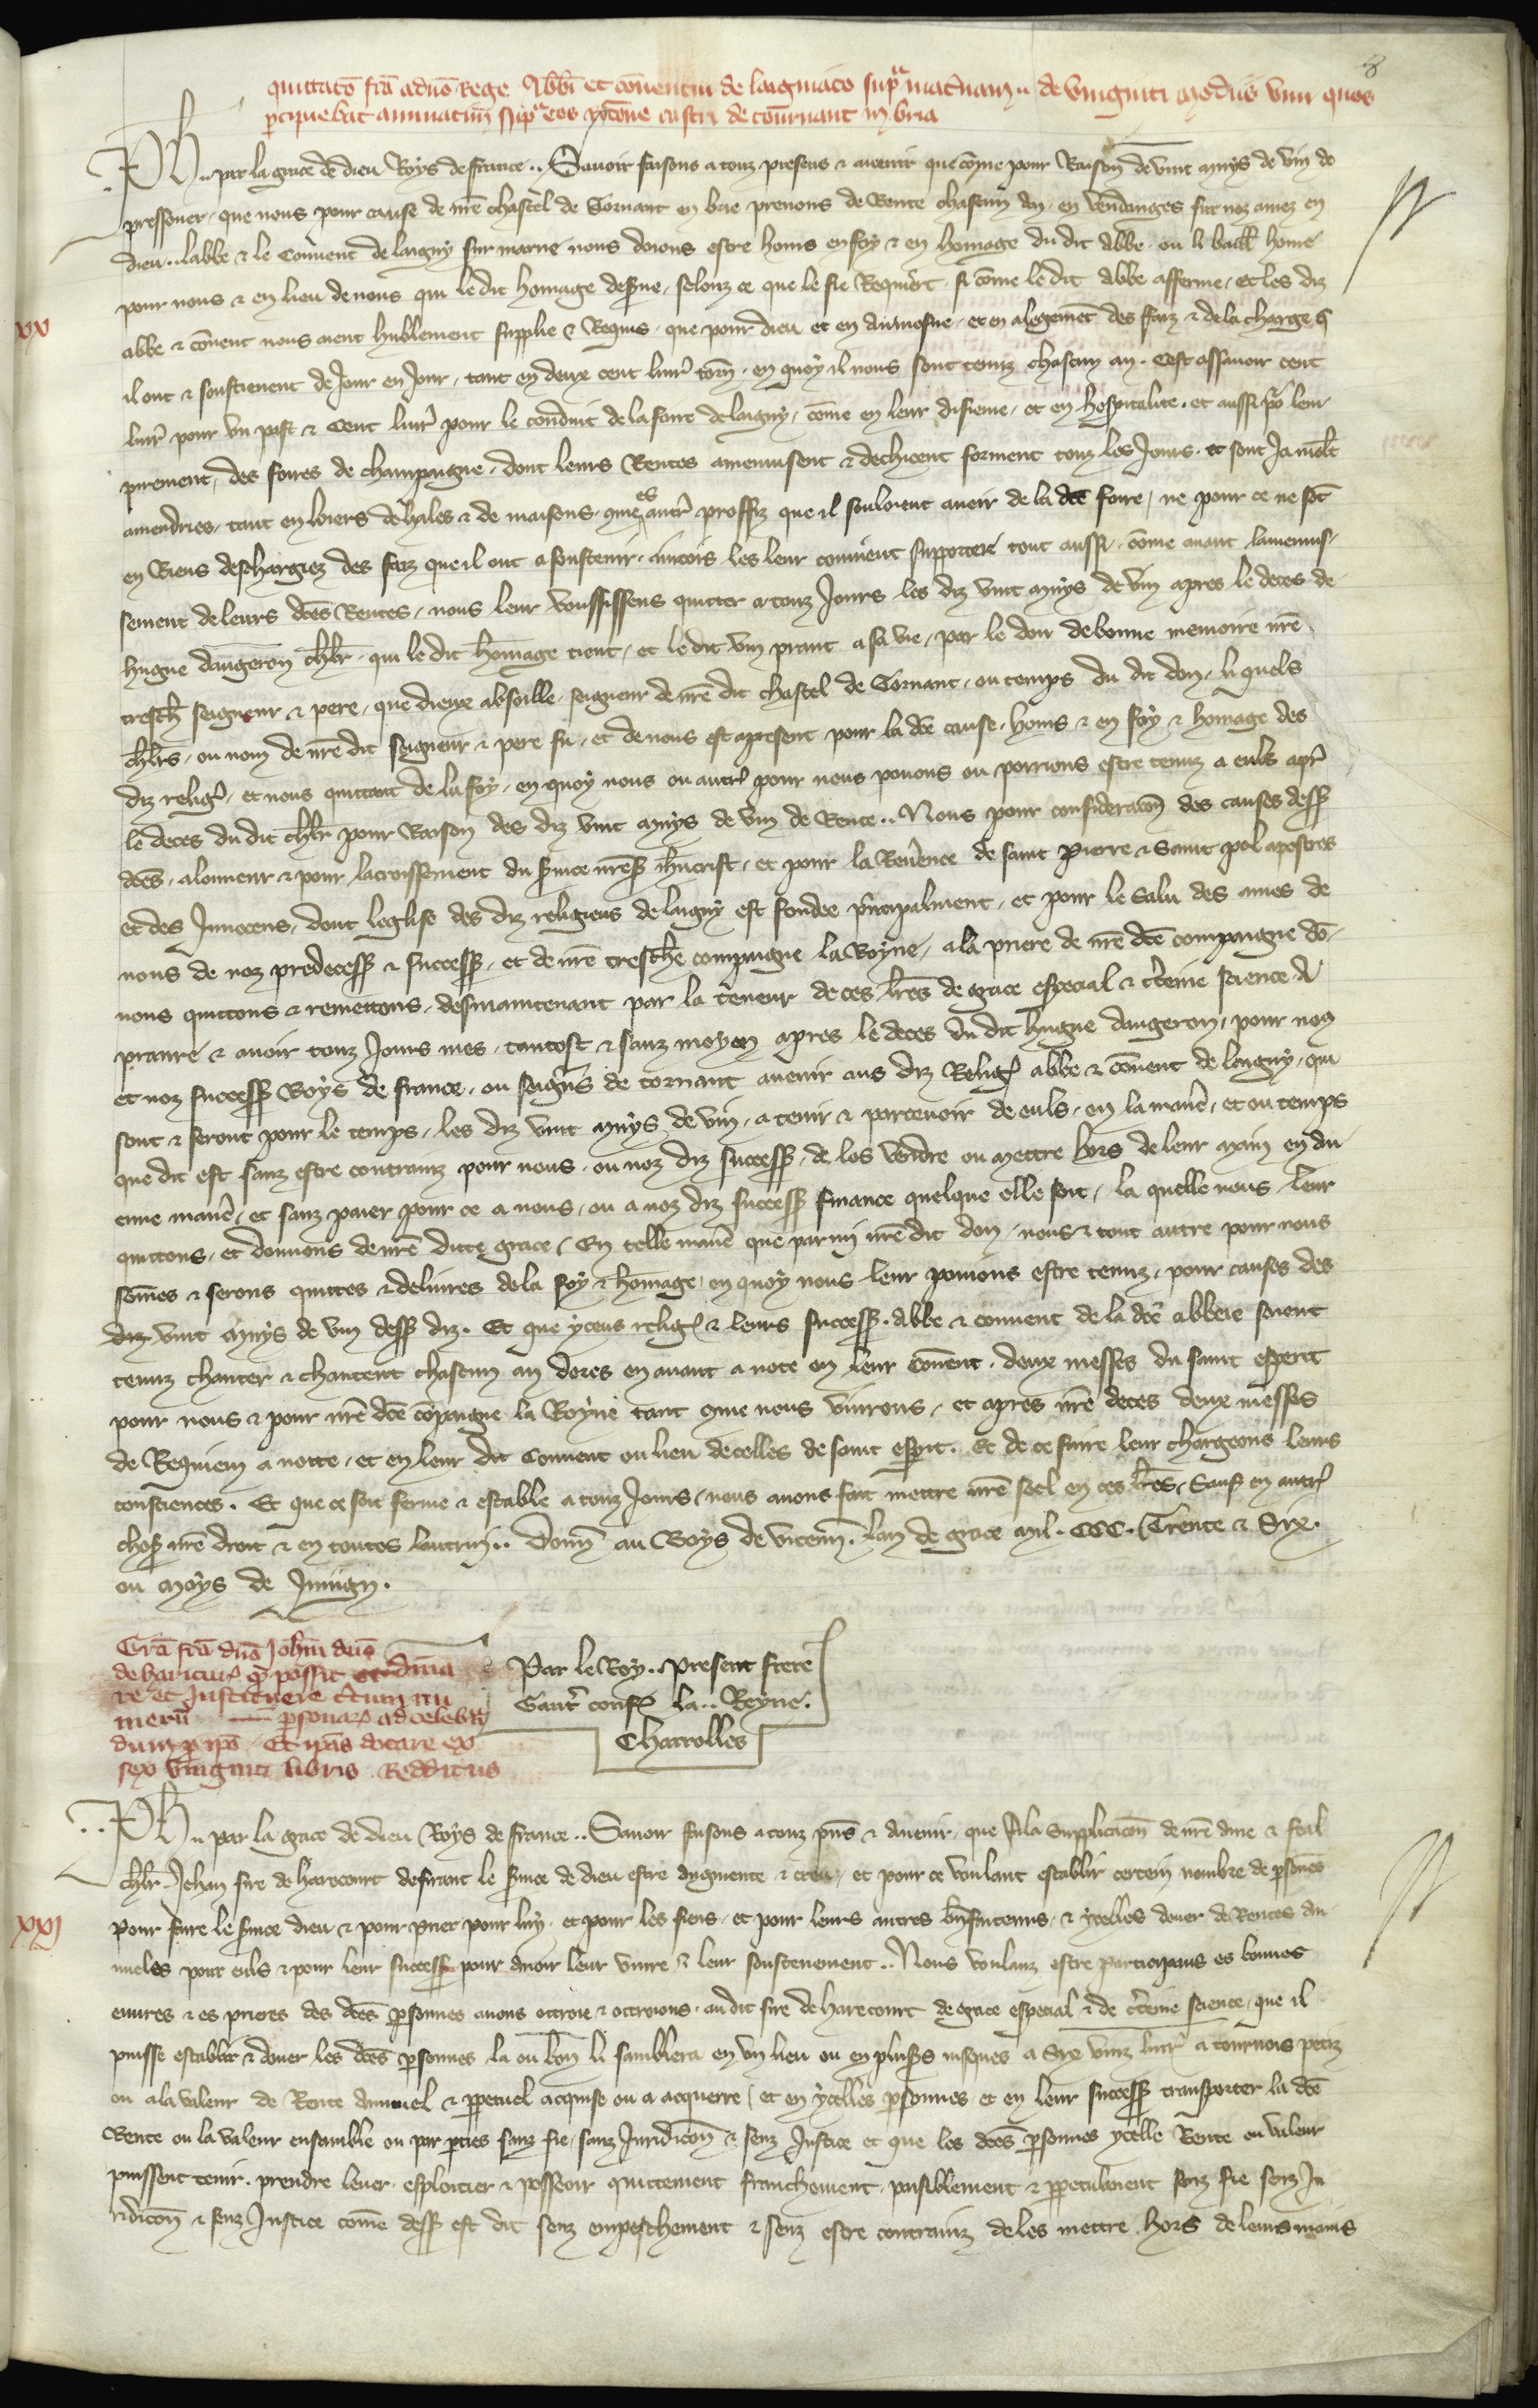 8
quittacō fcā a dño Rege Abb̄i et cōuentui de laigniaco sup̲ᵃ mat̾nam .. de viuginti modiis vini quos
p̲cipiebat annuatim sup̲ eos rōne castri de tournant in bria
Ph̾ .. par la grace de dieu Roys de france .. Sauoir faisons a touz presens & auenir que cōme pour Raison de vint muys de vin de
pressouer, que nous pour cause de nr̄e chastel de Tornant en brie prenons de Rente chascun an, en vendanges sur noz amez en
dieu .. labbe & le Couuent de laigny sur marne nous doions estre homs en foy & en homage du dit abbe, ou li baill̾ home
pour nous & en lieu de nous qui le dit homage desserue, selonz ce que le fie Requiert, si cōme le dit abbe afferme, et les diz
xx
abbe & couent nous aient humblement supplie & Requis, que pour dieu et en aumosne, et en alegemēt des faiz & de la charge q̄
il ont & soustienent de Jour en Jour, tant en deux cent liur̾ torn̾, en quoy il nous sont tenuz chascun an. Cest assauoir cent
liur̾ pour vn past & Cent liur̾ pour le conduit de la foire de laigny, cōme en leur disieme, et en hospitalite, et aussi po² leur
pirement, des foires de champaigne, dont leurs Rentes amenuisent & dechieent forment touz les Jours, et sont Ja mōlt
amendries, tant en loiers de hales & de maisons, que es autr̾ proffiz que il souloient auoir de la dcē foire, ne pour ce ne sōt
en Riens deschargiez des faiz que il ont a soustenir, aincois les leur couuient supporter tout aussi, cōme auant lamenuis-
sement de leurs dcēs Rentes, nous leur voussissens quitter a touz Jours les diz vint muys de vin apres le deces de
hugue daugeron ch̾lr, qui le dit homage tient, et le dit vin prant a sa vie, par le don de bonne memoire nr̄e
tresch̾ seigneur & pere, que dieux absoille, seigneur de nr̄e dit chastel de Tornant, ou temps du dit don, li quels
ch̾lrs, ou nom de nr̄e dit seigneur & pere fu, et de nous est apresent pour la dcē cause, homs & en foy & homage des
diz relig̾, et nous quittant de la foy, en quoy nous ou autr̾ pour nous pouons ou porrions estre tenuz a euls apr̾
le deces du dit ch̾lr pour Raison des diz vint muys de vin de Rente .. Nous pour consideracōn des causes dess̾
dcēs, a lonneur & pour lacroissement du s̾uice nr̄es̾ ih̾ucrist, et pour la Reu̾ence de saint Pierre & Saint pol apostres
et des Innocens, dont leglise des diz religieus de laigny est fondee p̾ncipalment, et pour le Salu des ames de
nous de noz predecess̾ & success̾, et de nr̄e tresch̾e compaigne la Royne, a la priere de nr̄e dcē compaigne dō-
nous quittons & remettons, desmaintenant par la teneur de ces lr̄es de grace especial & c̾teine science A
pranre & auoir touz Jours mes, tantost & sanz moyen apres le deces du dit hugue daugeron, pour nos
et noz success̾ Roys de france, ou seign̾s de tornant auenir aus diz Relig̾ abbe & couent de laigny, qui
sont & seront pour le temps, les diz vint muys de vin, a tenir & parceuoir de euls, en la manie̾, et ou temps
que dit est sanz estre contrainz pour nous, ou noz diz success̾, de les vendre ou mettre hors de leur main en au
cune manie̾, et sanz paier pour ce a nous, ou a noz diz success̾ finance quelque elle soit, la quelle nous leur
quittons, et donnons de nr̄e ditte grace, En telle manie̾ que parmi nr̄e dit don, nous & tout autre pour nous
sōmes & serons quittes & deliures de la foy & homage, en quoy nous leur pouions estre tenuz, pour causes des
diz vint muys de vin dess̾ diz. Et que yceus relig̾ & leurs success̾, Abbe & conuent de la dcē abbeie soient
tenuz chanter & chantent chascun an dores en auant a note en leur couent, deux messes du saint esperit
pour nous & pour nr̄e dcē cōpaigne la Royne tant que nous viurons, et apres nr̄e deces deux messes
de Requiem a notte, et en leur dit Conuent ou lieu decelles de saint esp̲it. Et de ce faire leur chargeons leurs
consciences. Et que ce soit ferme & estable a touz Jours, nous auons fait mettre nr̄e seel en ces lr̄es, Sauf en autr̾
chos̾ nr̄e droit & en toutes lautrui .. Donn̾ au Boys de vicenn̾. lan de grace mil. CCC. Trente & Six.
ou moys de Juuign.
Grā fcā dn̄o Joh̄i dn̄o
de haricur̾ q̄ possit ordina
re et Instituere c̾tum nu
merū p̲sonar̾ ad celebrā
dum p̲ ip̄o Et ip̄as dotare ex
sex viuginti libris Redditus
Par le Roy .. Present frere
Gaut̾ conf̾ la .. Reyne.
Charrolles
Ph̾ .. par la grace de dieu Roys de france .. Sauoir faisons a touz pn̄s & auenir, que A la Supplicacōn de nr̄e ame & feal
ch̾lr Jehan sire de harecourt desirant le s̾uice de dieu estre augmente & creu, et pour ce voulant establir certein nombre de p̲sōnes
xxj
pour faire le s̾uice dieu & pour prier pour luy, et pour les siens, et pour leurs autres bn̄faiteurs, & ycelles douer de Rentes an-
nueles pour euls & pour leur success̾ pour auoir leur viure & leur soustenement .. Nous voulanz estre participans es bonnes
euures & es prieres des dcēs p̲sonnes auons ottroie & ottroions, au dit sire de harecourt de grace especial & de c̾teine science, que il
puisse establir & douer les dcēs p̲sonnes la ou bon li samblera en vn lieu ou en plus̾s iusques a Six vinz liur̾ a tournois petiz
ou a la valeur de Rente annuel & p̲petuel acquise ou a acquerre, et en ycelles p̲sonnes et en leur success̾ transporter la dcē
Rente ou la valeur ensamble ou par p̲ties sanz fie, sanz Juridicōn & senz Justice et que les dcēs p̲sonnes ycelle Rente ou valeur
puissent tenir, prendre leuer, esploitier & posseoir quittement franchement, paisiblement & p̲petuelment senz fie senz Ju
ridicōn & senz Justice cōme dess̾ est dit senz empeschement & senz estre contrainz de les mettre hors de leurs mains